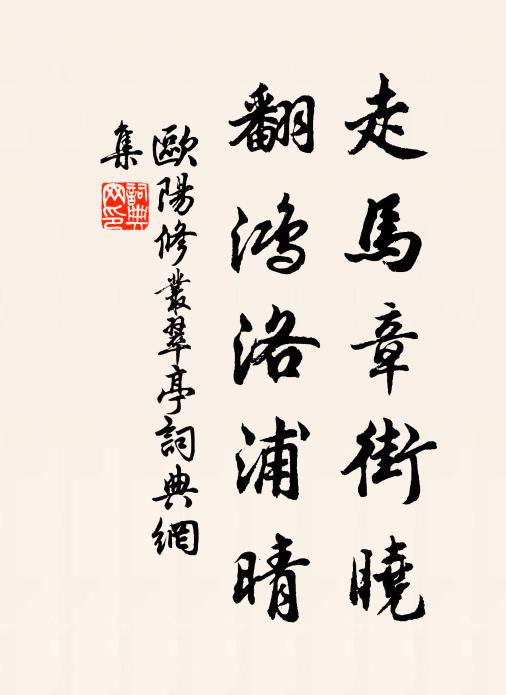 走馬章街曉
翻鴻洛浦晴
歐陽修叢翠亭詞典網
集
詞典
网印